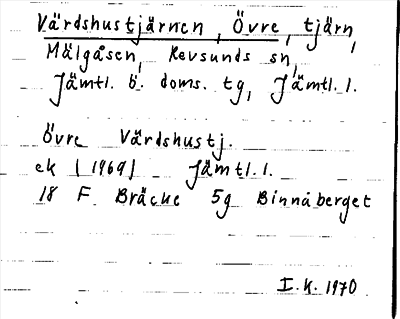 Värdshustjärnen, Övre, tjärn,
Mälgåsen, Revsunds sn,
Jämtl. ö. doms. tg, Jämtl. l.
Övre Värdshustj.
ek (1969) Jämtl. l.
18 F Bräcke 5g Binnåberget
I.K. 1970